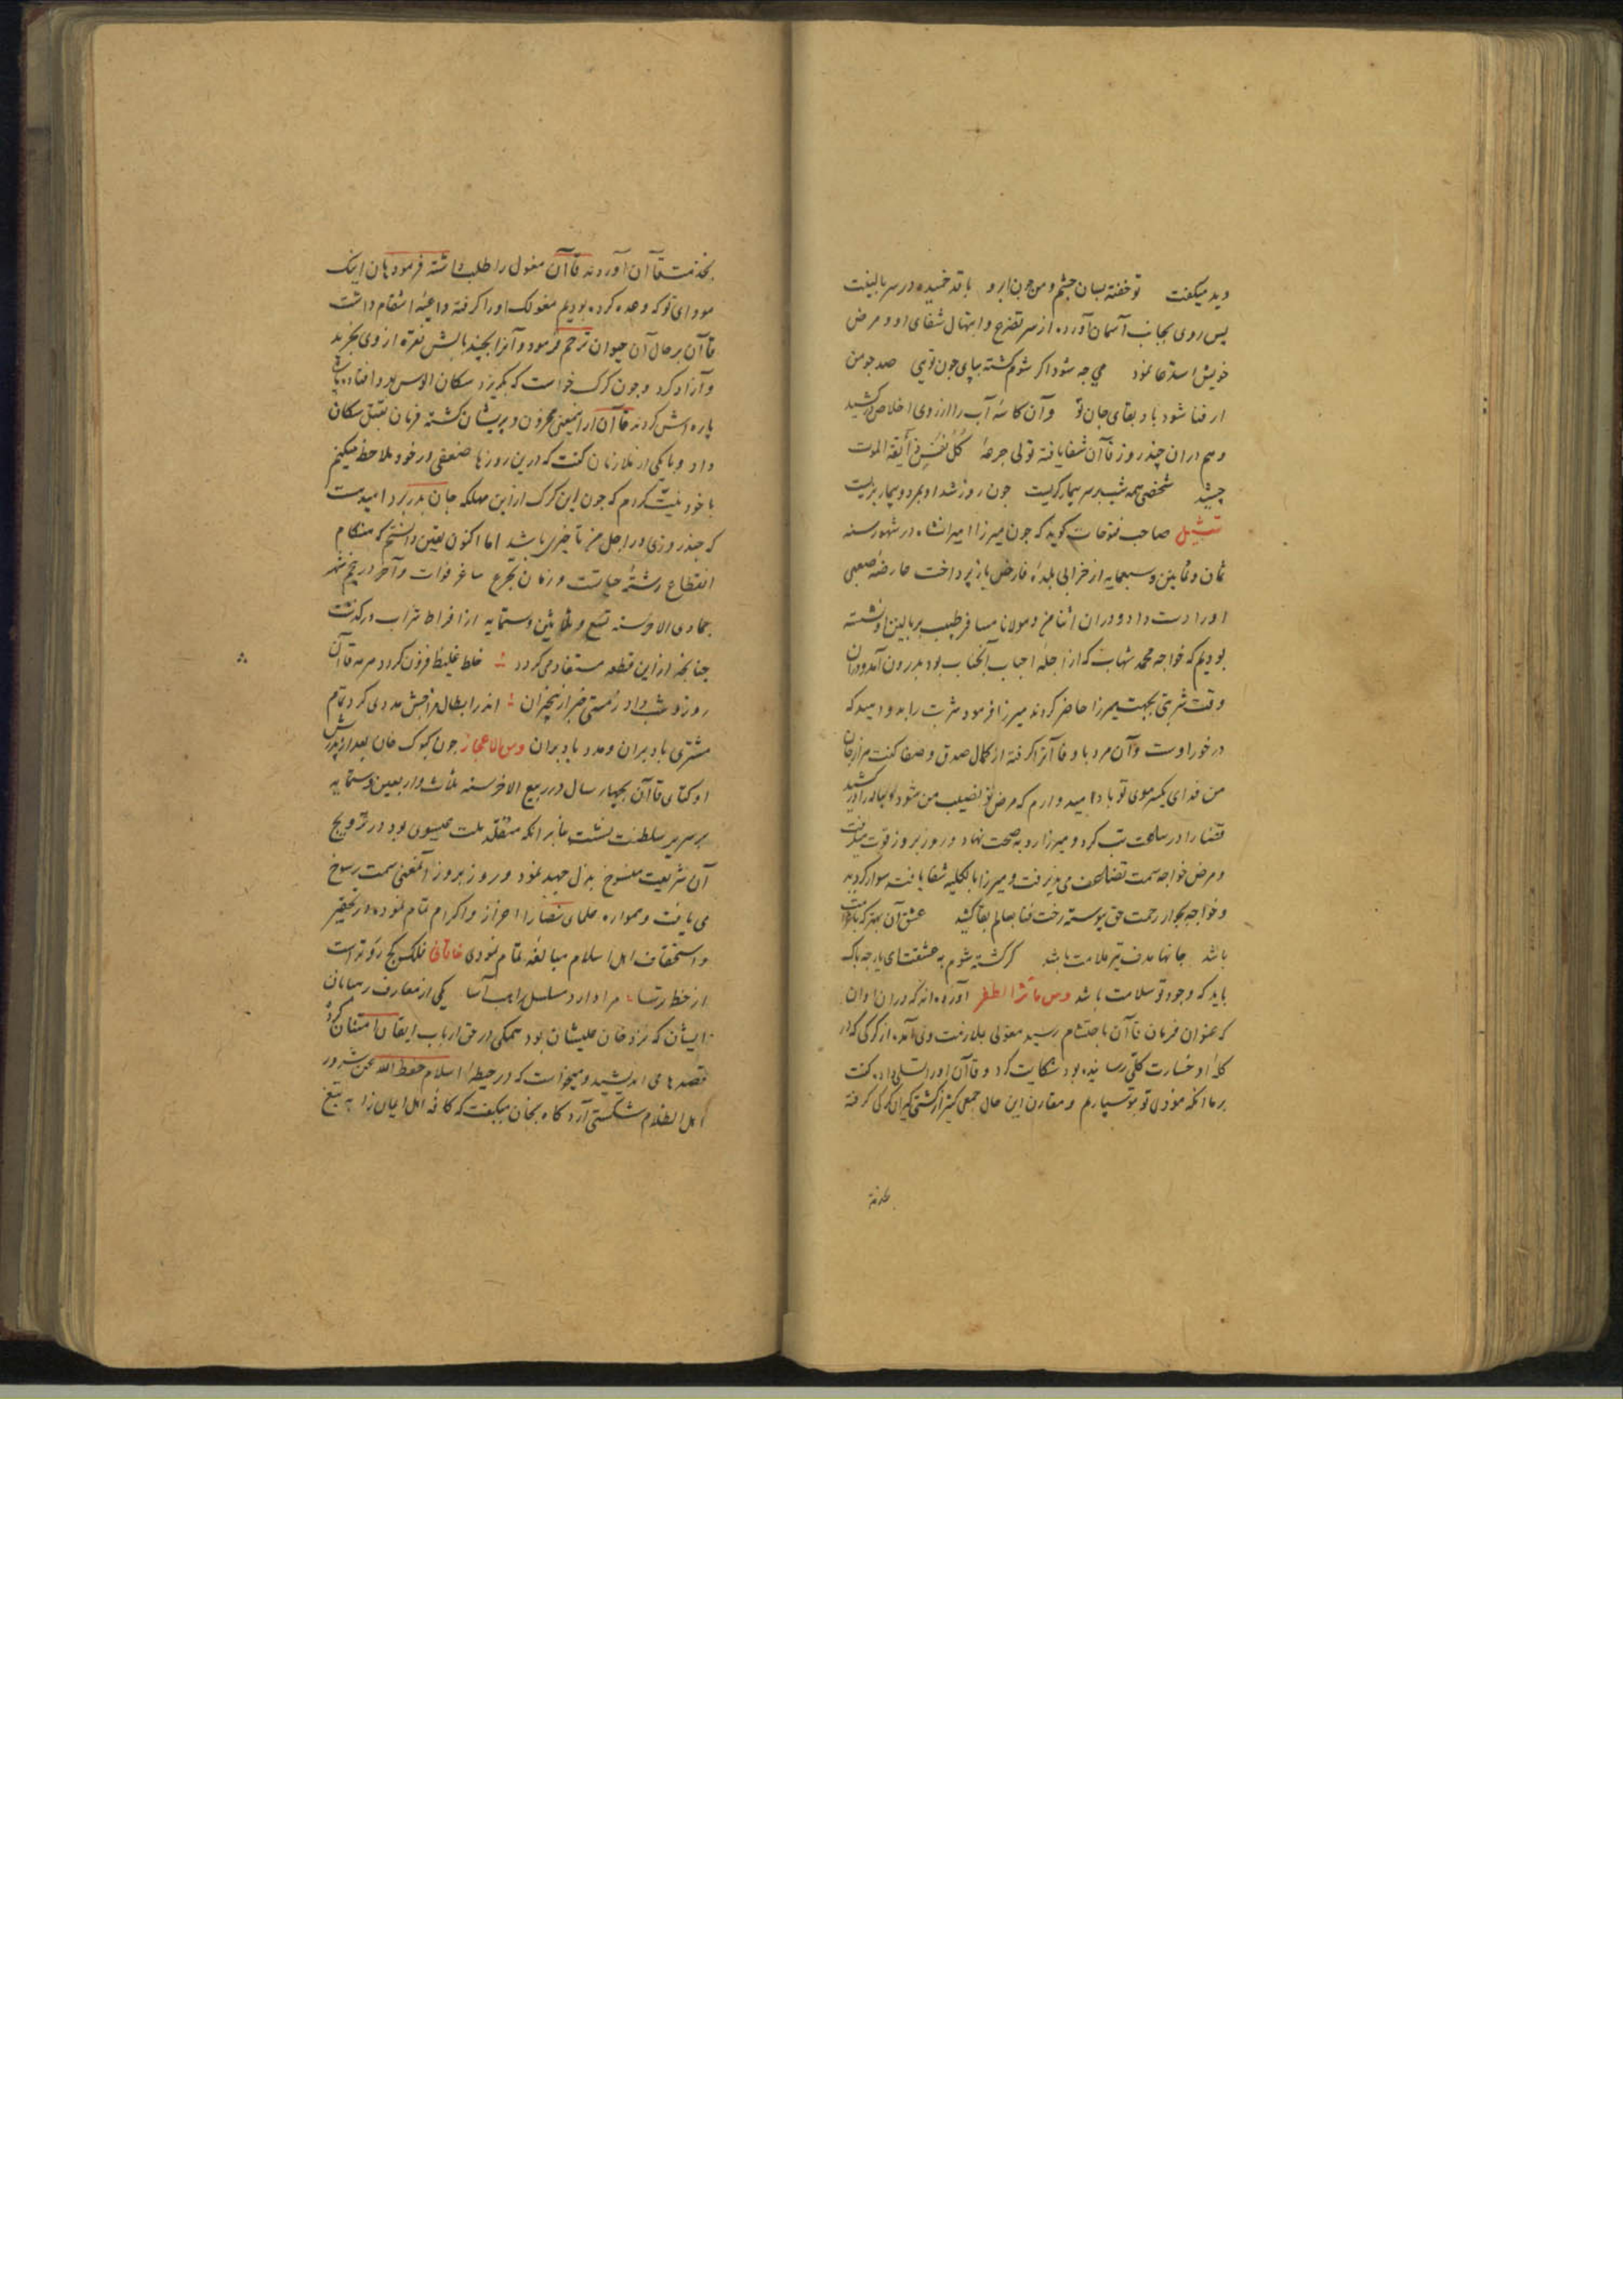 دید میکفت تو خفته بسان چشم و من چون ابرو با قد خمیده در سر بالینت
پس روی بجانب آسمان آورده از سر تضرع و ابتهال شفای او و مرض
خویش استدعا نمود می چه شود اکر شوم کشته بپای چون تویی صد چو من
ار فنا شود باد بقای جان تو وآن کاسهٔ آب را از روی اخلاص درکشید
و هم دران چند روز قاآن شفا یافته تولی جرعهٔ کُلُّ نَفْسٍ ذَآئِقَةُ الموت
چشید شخصی همه شب بر سر بیمار کریست چون روز شد او بمرد و بیمار بزیست
تمثیل صاحب فتوحات کوید که چون میرزا امیرانشاه در شهور سنه
ثمان و ثمانین و سبعمایه از خرابی بلدهٔ فارض باز پرداخت عارضهٔ صعبی
اورا دست داد و دران اثنا من و مولانا مسافر طبیب بر بالین او نشسته
بودیم که خواجه محمد شهاب که از جملهٔ احباب آنجناب بود بدرون آمد و دران
وقت شربتی بجهت میرزا حاضر کردند میرزا فرمود شربت را بدو دهید که
در خور اوست و آن مرد با وفا آنرا کرفته از کمال صدق و صفا کفت هزار جان
من فدای یکسر موی تو باد امیدوارم که مرض تو نصیب من شود و پیاله را درکشید
قضا را در ساعت تب کرد و میرزا رو به صحت نهاد و روز بروز قوت میکرفت
و مرض خواجه سمت تضاعف می پذیرفت و میرزا بالکلیه شفا یافته سوار کردید
و خواجه بجوار رحمت حق پیوسته رخت فنا بعالم بقا کشید عشق آن بهتر که با ملامت
باشد جانها هدف تیر ملامت باشد کر کشته شوم به عشقت ای یار چه باک
باید که وجود تو سلامت باشد ومن مآثر الظفر آورده اند که دران اوان
که عنوان فرمان قاآن باختتام رسید مغولی بملازمت وی آمده از کرکی که در
کلهٔ او خسارت کلی رسانیده بود شکایت کرد و قاآن اورا تسلی داده کفت
برما آنکه موذی تو بتو سپاریم و مقارن این حال جمعی کثیر از کشتی کیران کرکی کرفته
بخدمت
بخدمت قاآن آوردند قاآن مغول را طلب داشته فرمود هان اینک
مودای تو که وعده کرده بودیم مغولک اورا کرفته داعیهٔ انتقام داشت
قاآن بر حال آن حیوان ترحم فرمود و آنرا بچند بالش نقره از وی بخرید
و آزاد کرد و چون کرک خواست که بکریزد سکان الوس بدو افتاده پاره
پاره اش کردند قاآن از اینمعنی محزون و پریشان کشته فرمان بقتل سکان
داد و با یکی از ملازمان کفت که درین روزها ضعفی در خود ملاحظه میکنم
با خود نیت کردم که چون این کرک ازین مهلکه جان بدر برد امیدست
که چند روزی در اجل من تاخیری باشد اما اکنون یقین دانستم که هنکام
انقطاع رشتهٔ حیاتست و زمان تجرع ساغر فوات و آخر در پنجم شهر
جمادی الاخر سنه تسع و ثلاثین و ستمایه از افراط شراب درکذشت
چنانچه ازین قطعه مستفاد می کردد خلط غلیظ افزون کردد هر مه قاآن
روز و شب داد ز مستی خبر از بیخبران اندر ابطال مزاجش مددی کرد تمام
مشتری باد بران و مدد باد بران ومن الاعجاز چون کیوک خان بعد از پدرش
اوکتای قاآن بچهار سال در ربیع الاخر سنه ثلاث و اربعین و ستمایه
بر سریر سلطنت نشست بنا بر آنکه متقلد ملت عیسوی بود در ترویج
آن شریعت منسوخ بذل جهد نمود و روز بروز آنمعنی سمت رسوخ
می یافت و همواره علمای نصارا را اعزاز و اکرام تمام نموده در تحقیر
و استخفاف اهل اسلام مبالغهٔ تمام نمودی خاقانی فلک کج رو تر است
از خط ترسا مرا دارد مسلسل راهب آسا یکی از معارف رهبانان
ایشان که نزد خان علیشان بود همکی در حق ارباب ایقان امتنان کرده
قصدها می اندیشید و میخواست که در حیطهٔ اسلام حفظ الله عن شرور
اهل الظلام شکستی آرد کاه بخان میکفت که کافه اهل ایمان را به تیغ